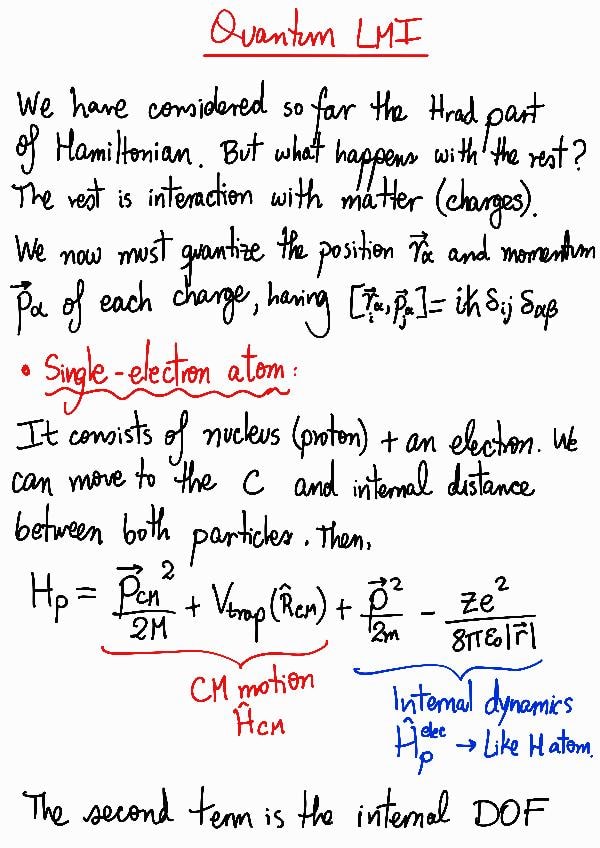 Quantum LMI
We have considered so far the Hrad part
of Hamiltonian. But what happens with the rest?
The rest is interaction with matter (charges).
We now must quantize the position r⃗α and momentum
p⃗α of each charge, having [r⃗αᵢ, p⃗αⱼ] = iħ δij δαβ
• Single-electron atom:
It consists of nucleus (proton) + an electron. We
can move to the C and internal distance
between both particles. Then,
Hp = p⃗CM²/2M + Vtrap(R̂CM) + p⃗²/2m − Ze²/8πε₀|r⃗|
CM motion Internal dynamics
ĤCM Ĥp^elec → Like H atom.
The second term is the internal DOF